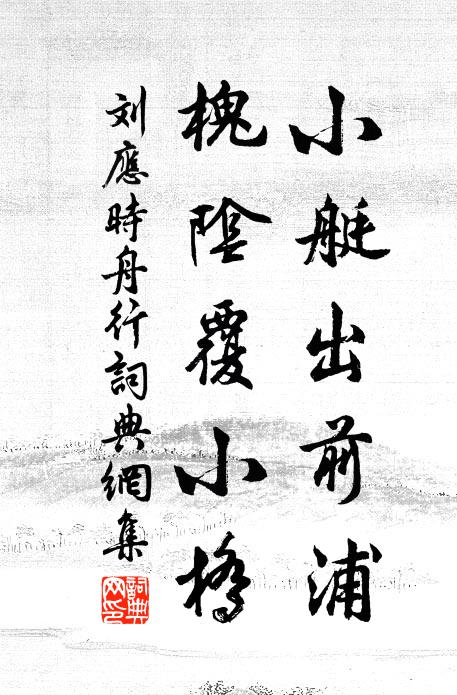 小艇出前浦
槐陰覆小橋
刘應時舟行詞典網集
詞典网印